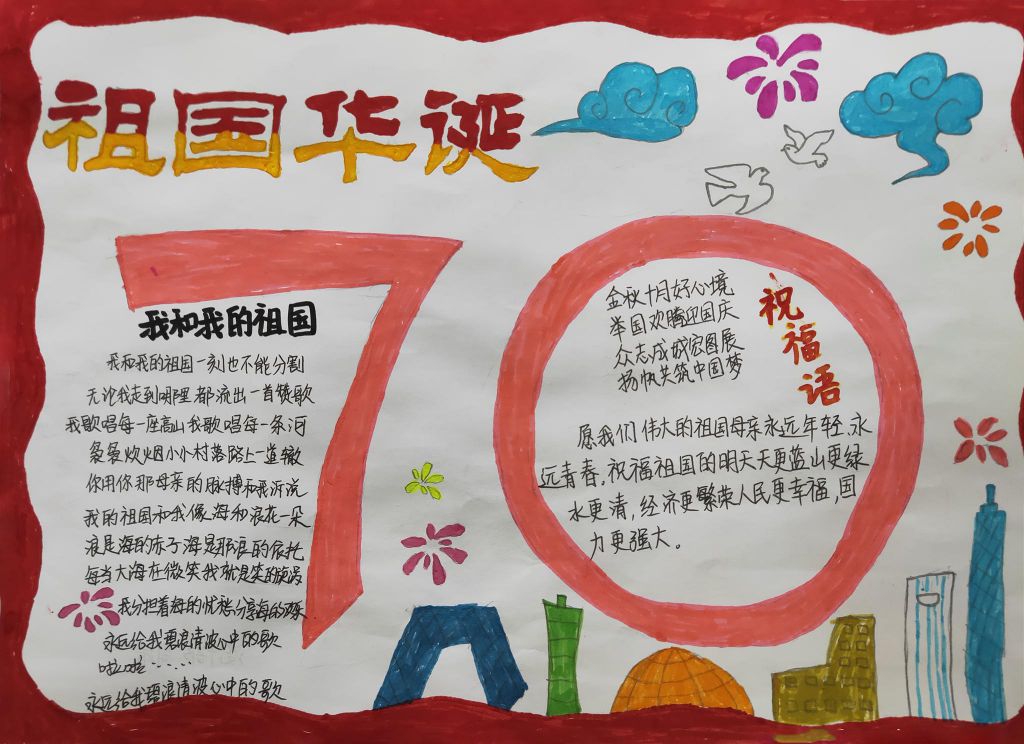 祖国华诞
70
我和我的祖国
我和我的祖国一刻也不能分割
无论我走到哪里都流出一首赞歌
我歌唱每一座高山我歌唱每一条河
袅袅炊烟小小村落路上一道辙
你用你那母亲的脉搏和我诉说
我的祖国和我像海和浪花一朵
浪是海的赤子海是那浪的依托
每当大海在微笑我就是笑的旋涡
我分担着海的忧愁分享海的欢乐
永远给我碧浪清波心中的歌
啦啦……
永远给我碧浪清波心中的歌
祝福语
金秋十月好心境
举国欢腾迎国庆
众志成城宏图展
扬帆共筑中国梦
愿我们伟大的祖国母亲永远年轻、永
远青春,祝福祖国的明天天更蓝山更绿
水更清,经济更繁荣人民更幸福,国
力更强大。